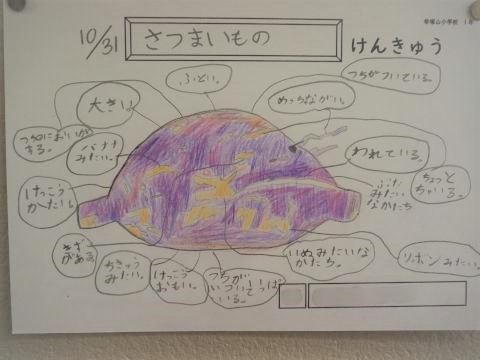 10/31
さつまいもの
けんきゅう
ふとい。
つちがついている。
大きい
めっちながい。
つちに おいが
する。
バナナ
みたい。
われている。
けっこう
かたい。
ぶた
みたい
なかたち
ちょっと
ちゃいる。
きず
がある
ちきゅう
みたい。
けっこう
おもい。
つちが
いっぱい
ついて
いる。
いぬみたいな
かたち。
リボンみたい。